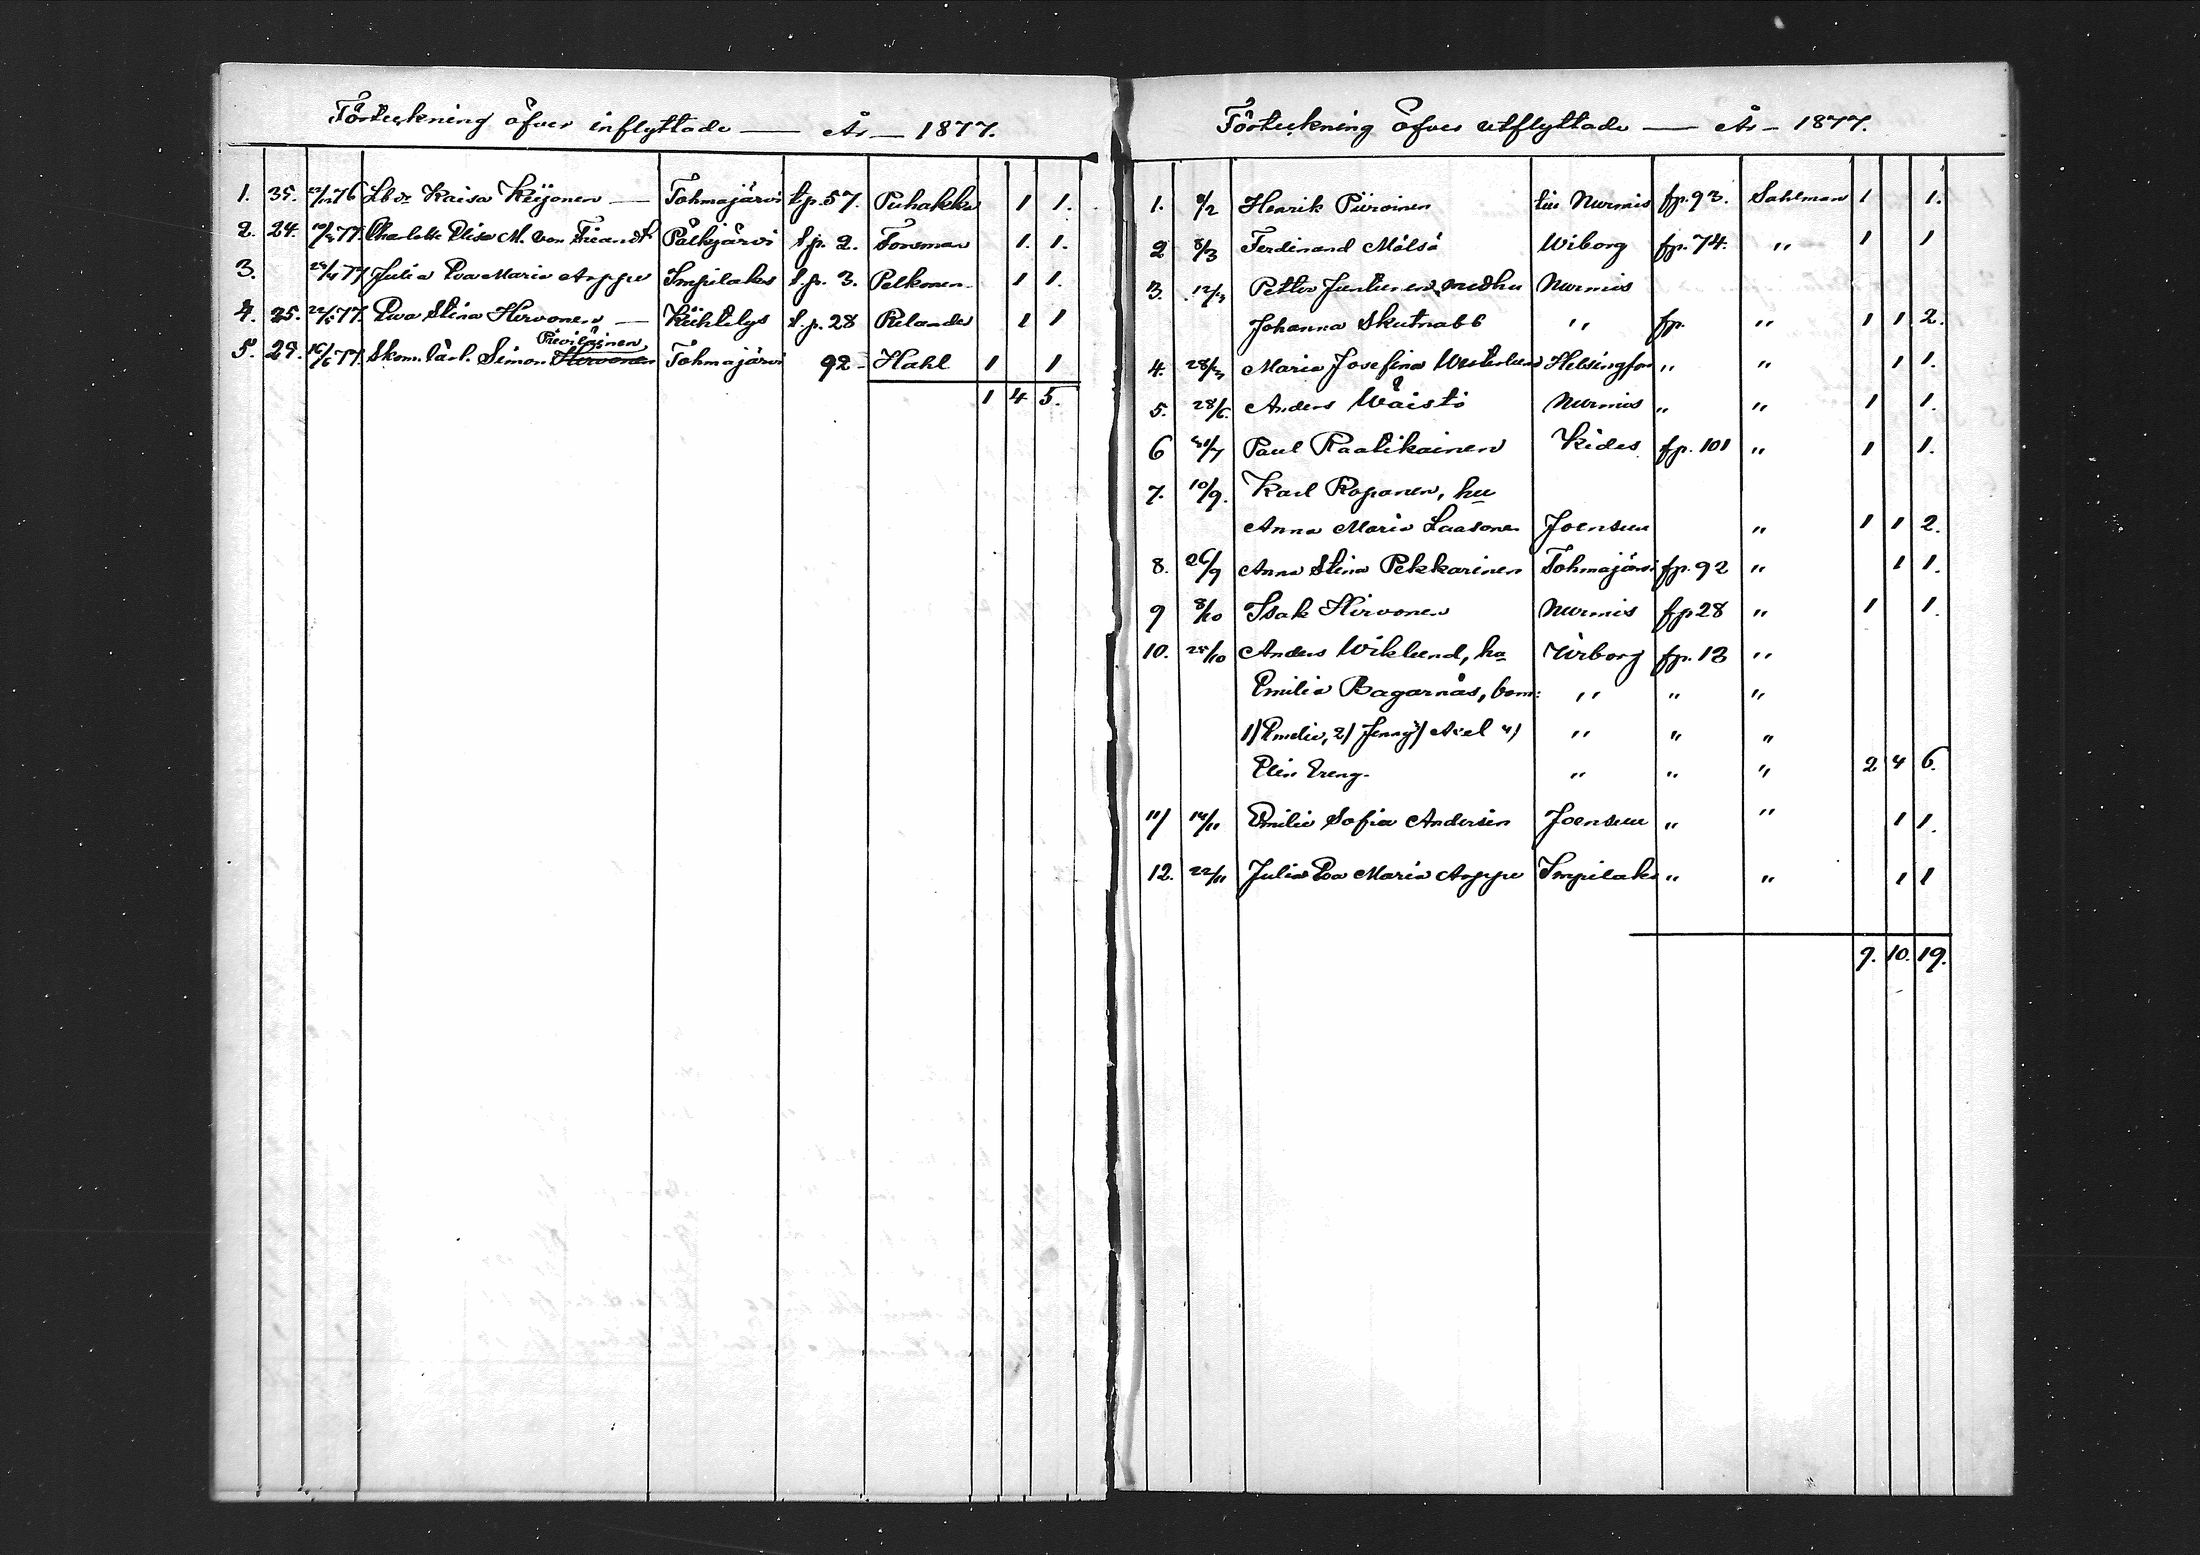 Förteckning öfver inflyttade — År — 1877.
1. 35. 22/12 76 Lbr Kaisa Keijonen — Tohmajärvi t.p. 57. Puhakka 1 1.
2. 24. 10/3 77. Charlotte Elisa M. von Fieandt Pälkjärvi t.p. 2. Forsman 1. 1.
3. 28/4 77 Julia Eva Maria Arppe Impilaks t.p. 3. Pelkonen 1 1.
4. 25. 22/5 77. Ewa Stina Hirvonen — Kiihtelys t.p. 28 Relander 1 1
Pieviläinen
5. 29. 16/6 77. Skom. lärl. Simon Hirvonen Tohmajärvi 92 - Hahl 1 1
1 4 5.
Förteckning öfver utflyttade — År — 1877.
1. 8/2 Henrik Piiroinen till Nurmis fp. 93. Sahlman 1 1.
2 8/3 Ferdinand Mälsä Wiborg fp. 74. " 1 1
3. 12/3 Petter Juntunen, med hu Nurmis
Johanna Skutnabb " fp. " 1 1 2.
4. 28/3 Maria Josefina Westerlund Helsingfors " " 1 1.
5. 28/6. Anders Wäistö Nurmis " " 1 1.
6 31/7 Paul Raatikainen Kides fp. 101 " 1 1.
7. 10/9. Karl Roponen, hu
Anna Maria Laasonen Joensuu " 1 1 2.
8. 26/9 Anna Stina Pekkarinen Tohmajärvi fp. 92 " 1 1.
9 8/10 Isak Hirvonen Nurmis fp 28 " 1 1.
10. 25/10 Anders Wiklund, hu Wiborg fp. 13 "
Emilia Bagarnäs, barn: " " "
1/ Emelie, 2/ Jenny 3/ Axel 4/ " " "
Elin Ereng. " " " 2 4 6.
11/ 14/11 Emilie Sofia Andersin Joensuu " " 1 1.
12. 22/11 Julia Eva Maria Arppe Impilaks " " 1 1
9. 10. 19.